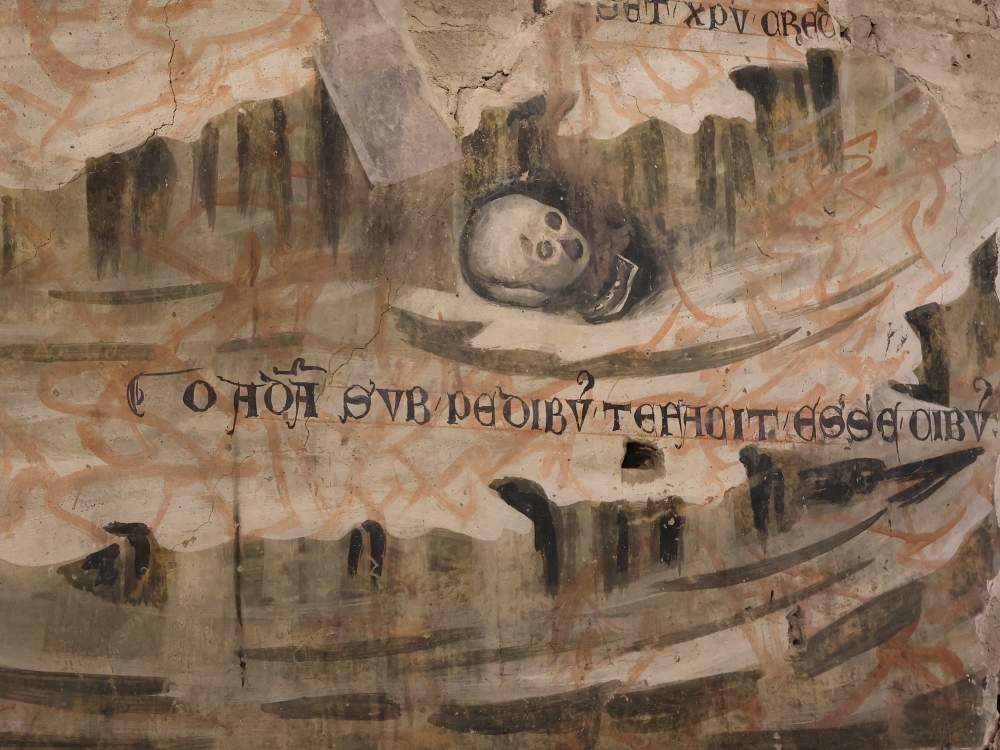 SET XPV CRED
O ADA SVB PEDIBV TEFACIT ESSE CIBV